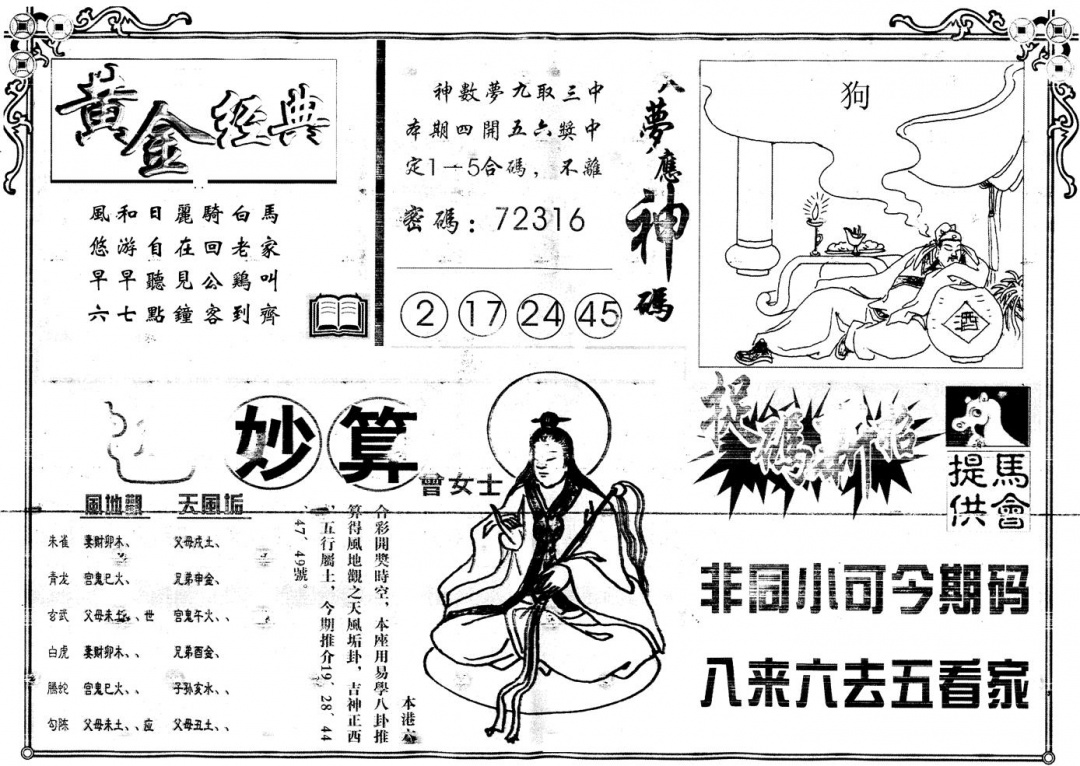 黃金經典
風和日麗騎白馬
悠游自在回老家
早早聽見公鷄叫
六七點鐘客到齊
神數夢九取三中
本期四開五六獎中
定1一5合碼，不離
密碼：72316
2 17 24 45
八夢應神碼
狗
酒
妙算
曾女士
風地觀 天風垢
朱雀 妻財卯木、 父母戌土、
青龙 官鬼巳火、 兄弟申金、
玄武 父母未土、、世 官鬼午火、、
白虎 妻財卯木、、 兄弟酉金、
腾蛇 官鬼巳火、、 子孙亥水、、
勾陈 父母未土、、应 父母丑土、、
本港六
合彩開獎時空，本座用易學八卦推
算得風地觀之天風垢卦，吉神正西
，五行屬土，今期推介19、28、44
、47、49號。
捉碼新招
馬會提供
非同小可今期码
八来六去五看家